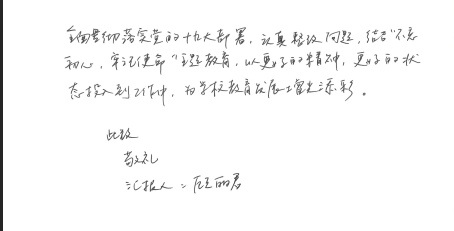 全面贯彻落实党的十九大部署，认真整改问题，结合“不忘
初心，牢记使命”主题教育，以更好的精神，更好的状
态投入到工作中，为学校教育发展增光添彩。
此致
敬礼
汇报人：丽君